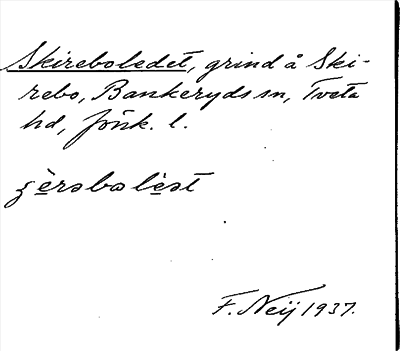 Skireboledet, grind å Ski-
rebo, Bankeryds sn, Tveta
hd, Jönk. l.
F. Neij 1937.